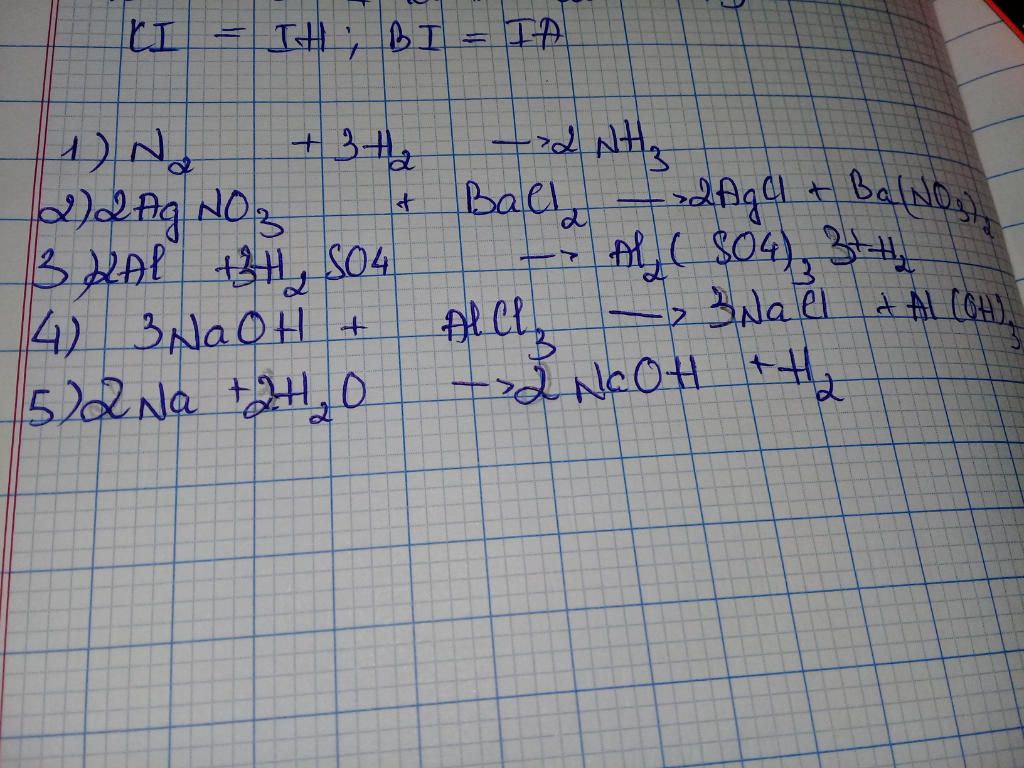 KI = IH ; BI = IA
1) N₂ + 3H₂ → 2 NH₃
2) 2Ag NO₃ + BaCl₂ → 2AgCl + Ba(NO₃)₂
3) 2Al + 3H₂ SO4 → Al₂ ( SO4)₃ 3+H₂
4) 3NaOH + AlCl₃ → 3NaCl + Al(OH)₃
5) 2Na + 2H₂O → 2 NaOH + H₂